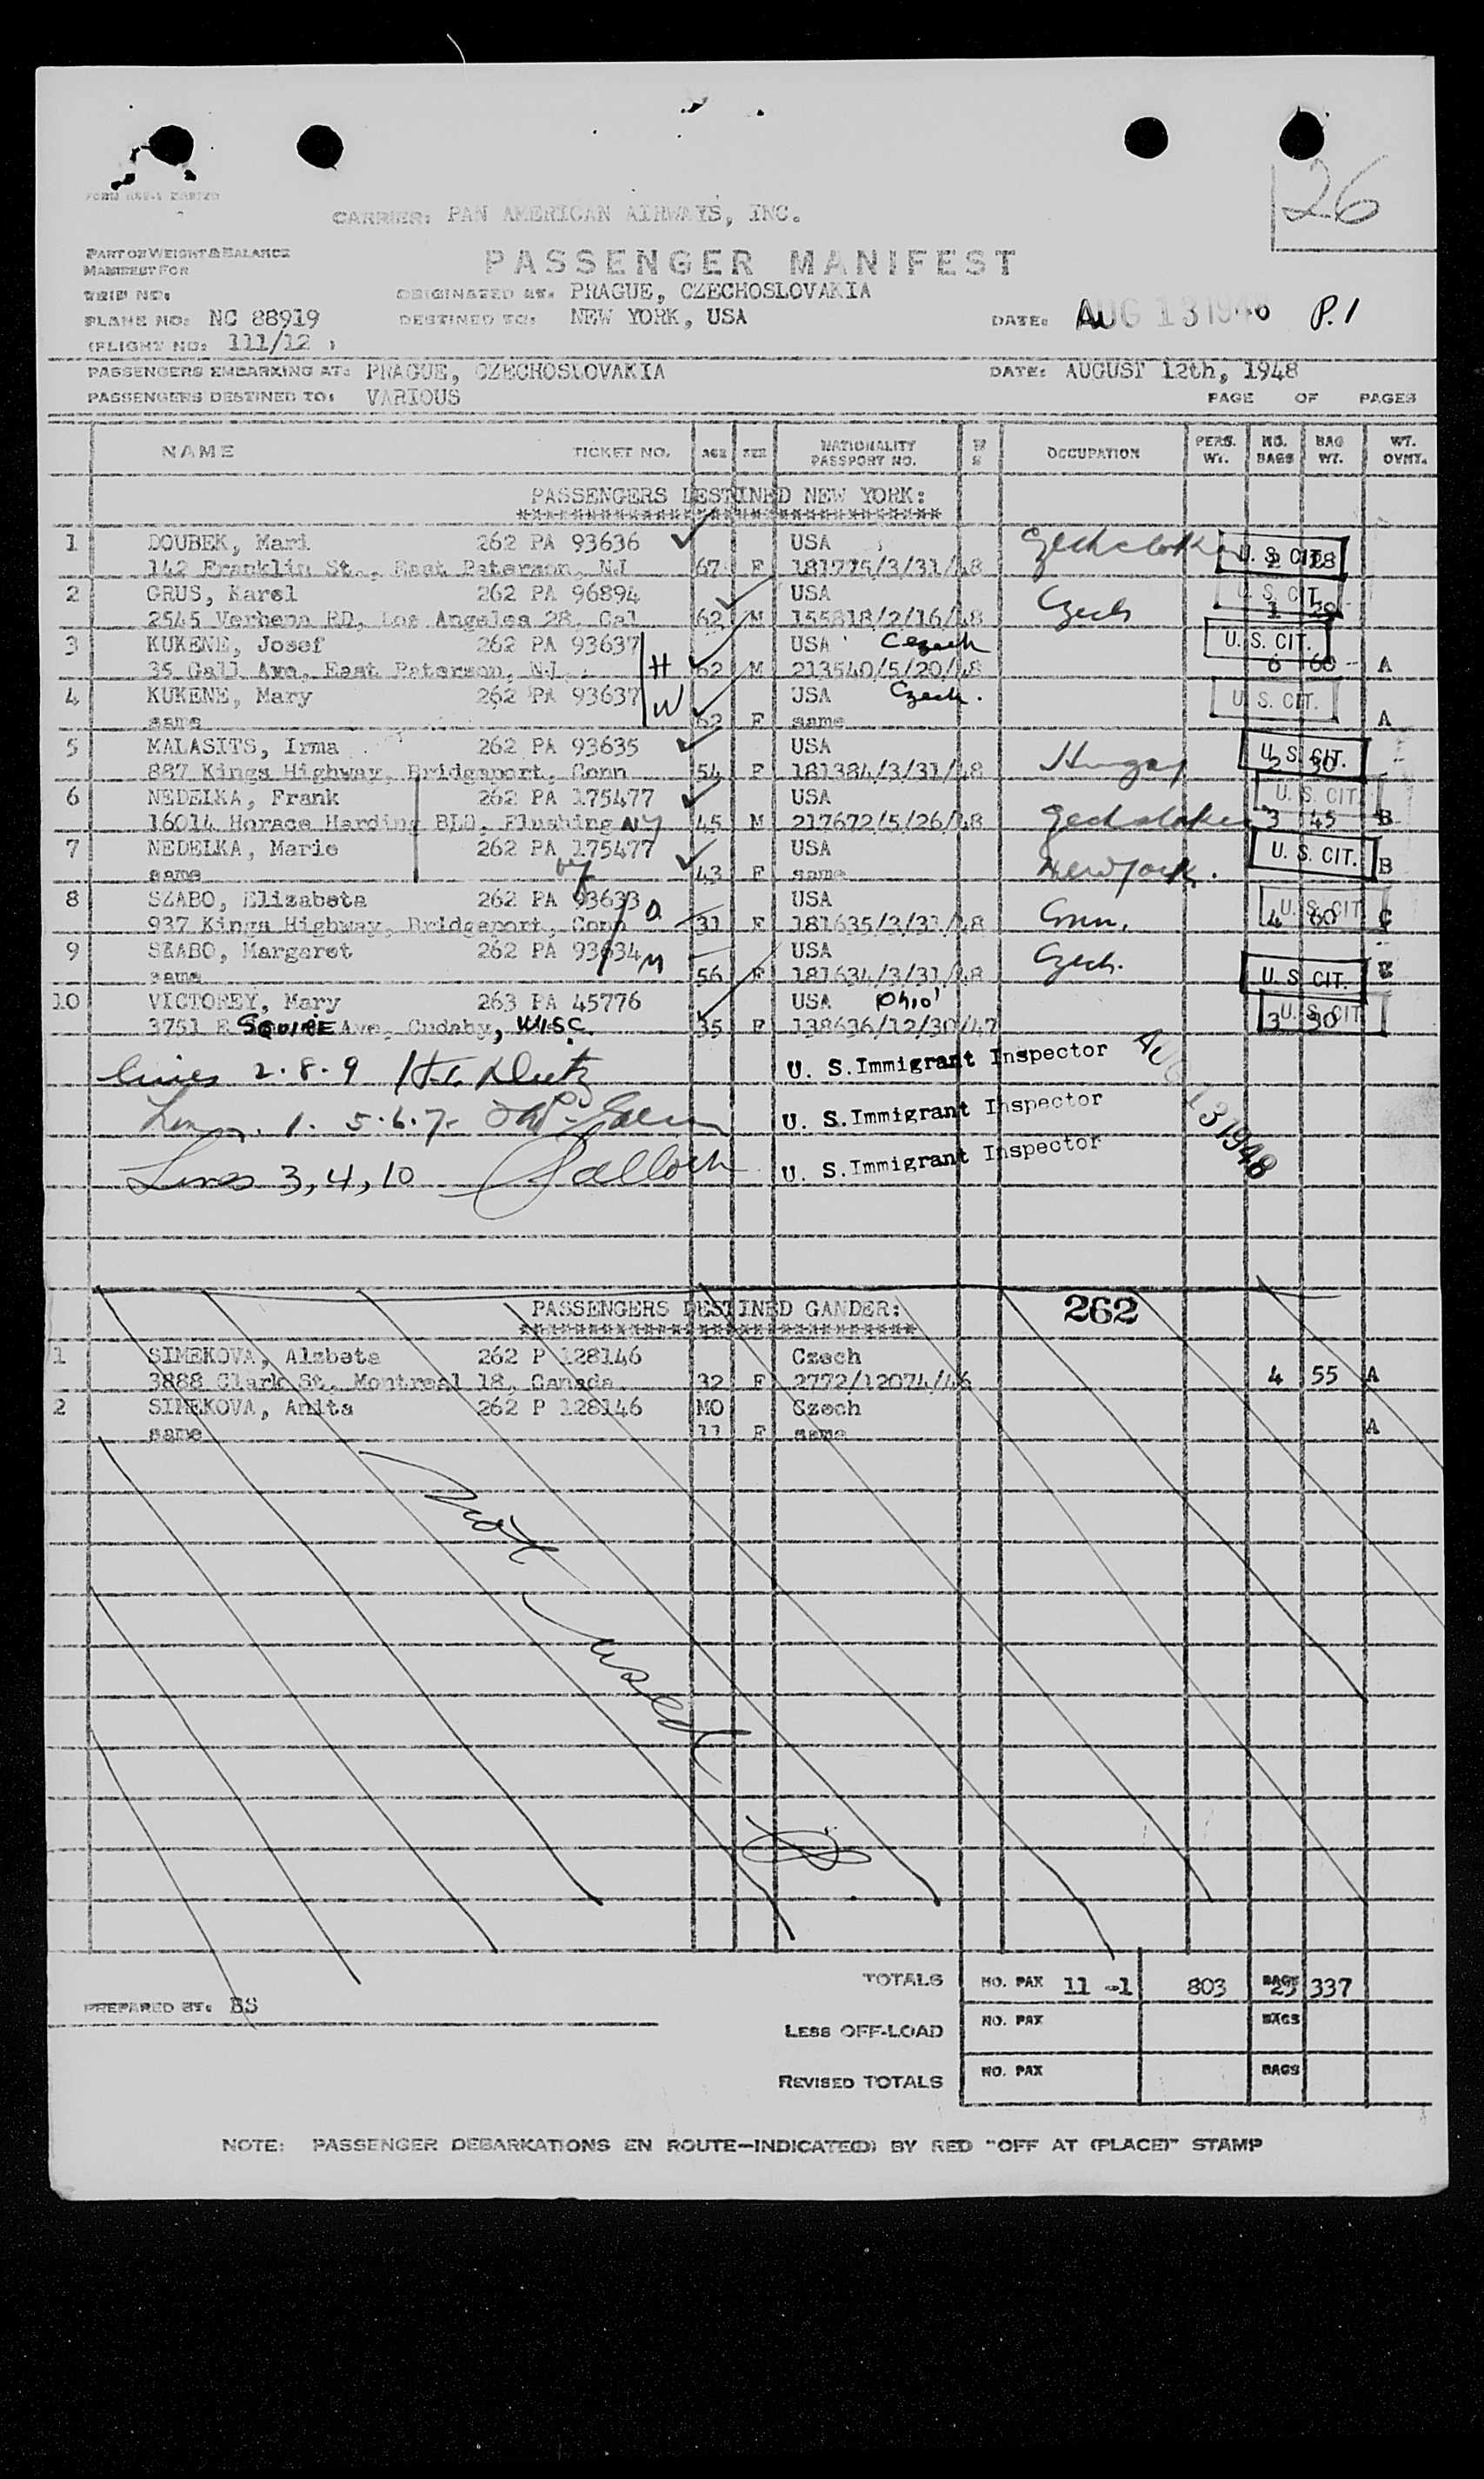 26
CARRIER: PAN AMERICAN AIRWAYS, INC.
PART OF WEIGHT & BALANCE
MANIFEST FOR
PASSENGER MANIFEST
TRIP NO:
ORIGINATED AT: PRAGUE, CZECHOSLOVAKIA
PLANE NO: NC 88919
DESTINED TO: NEW YORK, USA
DATE: AUG 13 1948 P.1
(FLIGHT NO: 111/12 )
PASSENGERS EMBARKING AT: PRAGUE, CZECHOSLOVAKIA DATE: AUGUST 12th, 1948
PASSENGERS DESTINED TO: VARIOUS PAGE OF PAGES
NAME TICKET NO. AGE SEX NATIONALITY PASSPORT NO. OCCUPATION PERS. WT. NO. BAGS BAG WT. WT. OVNT.
PASSENGERS DESTINED NEW YORK:
**********************************
1 DOUBEK, Mari 262 PA 93636 USA U. S. CIT.
142 Franklin St., East Paterson, NJ 67 F 181775/3/31/48 2 28
2 GRUS, Karel 262 PA 96894 USA Czech U. S. CIT.
2545 Verbena RD, Los Angeles 28, Cal 62 M 155818/2/16/48 1
3 KUKENE, Josef 262 PA 93637 USA Czech U. S. CIT.
35 Gall Ave, East Paterson, NJ H 62 M 213540/5/20/48 6 60 A
4 KUKENE, Mary 262 PA 93637 W USA Czech. U. S. CIT.
same 62 F same A
5 MALASITS, Irma 262 PA 93635 USA U. S. CIT.
887 Kings Highway, Bridgeport, Conn 54 F 181384/3/31/48 Hungary 2 30
6 NEDELKA, Frank 262 PA 175477 USA U. S. CIT.
16014 Horace Harding BLD, Flushing NY 45 M 217672/5/26/48 3 45 B
7 NEDELKA, Marie 262 PA 175477 USA U. S. CIT. B
same 43 F same New York.
8 SZABO, Elizabeta 262 PA 93633 D USA U. S. CIT.
937 Kings Highway, Bridgeport, Conn 31 F 181635/3/31/48 Conn. 4 60 C
9 SZABO, Margaret 262 PA 93634 M USA Czech.
same 56 F 181634/3/31/48 U. S. CIT.
10 VICTOREY, Mary 263 PA 45776 USA Ohio U. S. CIT.
3751 E SQUIRE Ave, Cudahy, WISC. 35 F 138636/12/30/47 3 30
Lines 2.8.9 U. S. Immigrant Inspector AUG 13 1948
Lines 1. 5.6.7. U. S. Immigrant Inspector
Lines 3, 4, 10 U. S. Immigrant Inspector
PASSENGERS DESTINED GANDER: 262
********************************
1 SIMEKOVA, Alzbeta 262 P 128146 Czech
3888 Clark St, Montreal 18, Canada 32 F 2772/12074/46 4 55 A
2 SIMEKOVA, Anita 262 P 128146 MO Czech
same 11 F same A
Not used
TOTALS NO. PAX 11 -1 803 BAGS 25 337
PREPARED BY: BS
LESS OFF-LOAD NO. PAX BAGS
REVISED TOTALS NO. PAX BAGS
NOTE: PASSENGER DEBARKATIONS EN ROUTE—INDICATE(D) BY RED "OFF AT (PLACE)" STAMP